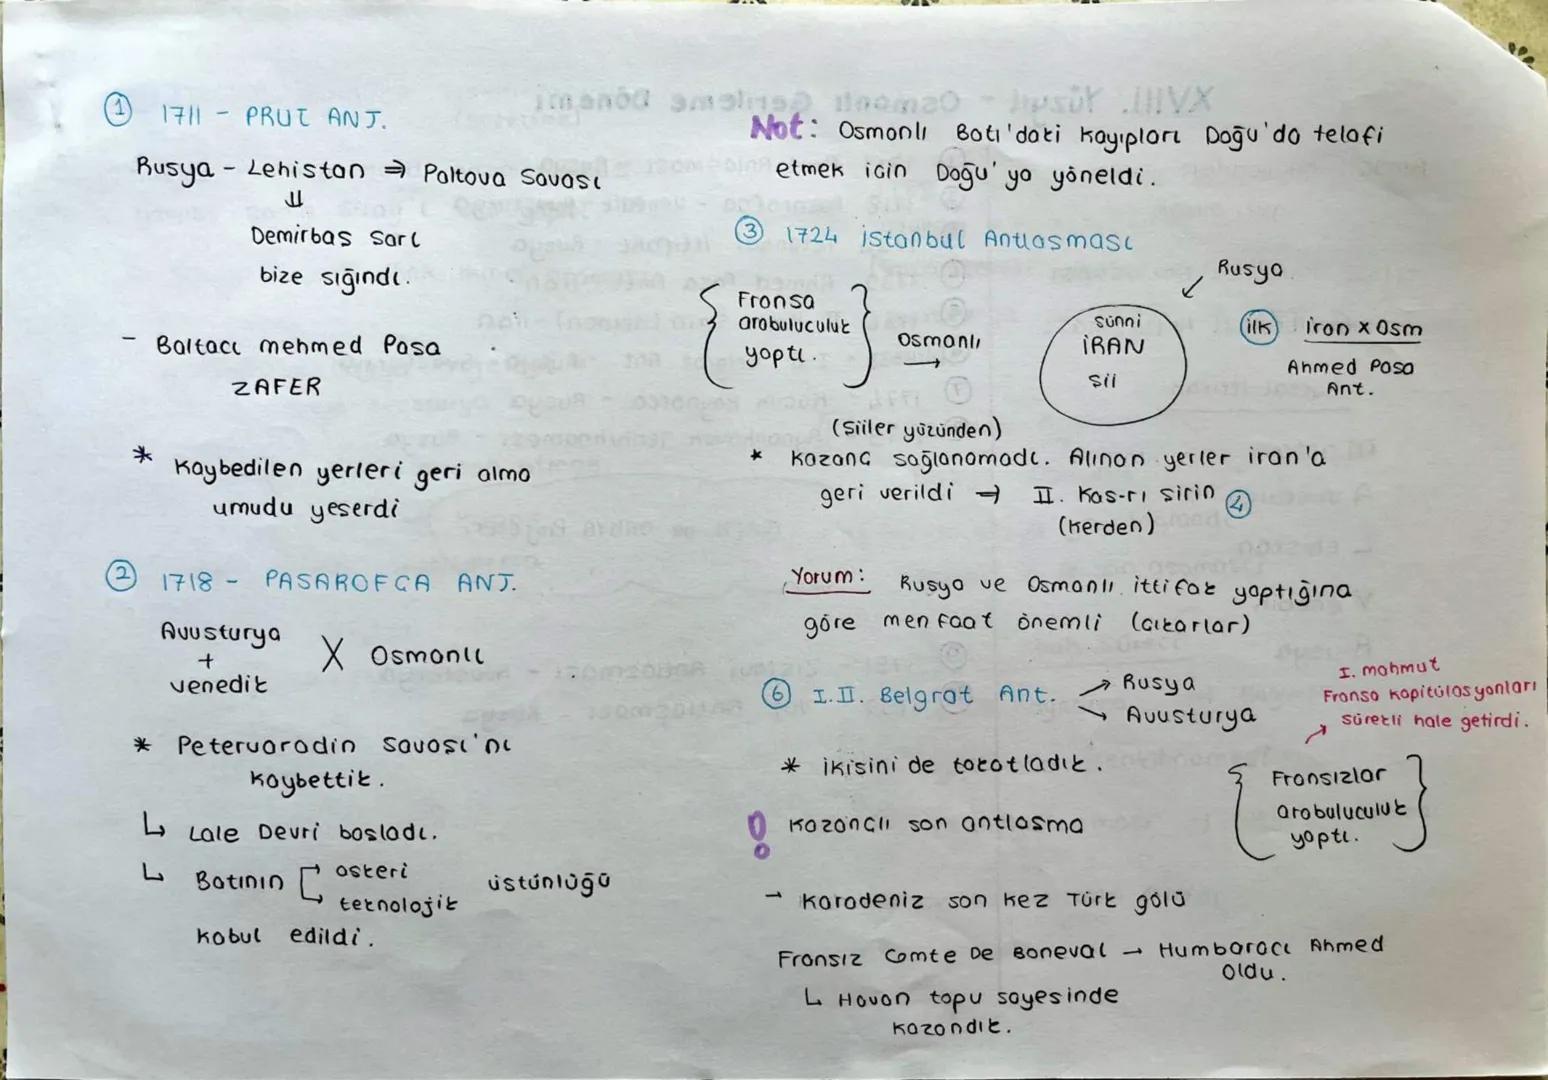 1 1711 - PRUT ANT.
Rusya - Lehistan ⇒ Poltova Savası
⇓
Demirbas Sarl
bize sığındı.
- Baltacı mehmed Pasa
ZAFER
* Kaybedilen yerleri geri alma
umudu yeserdi
2 1718 - PASAROFCA ANT.
Avusturya
+
venedik
X Osmanlı
* Petervaradin Savası'nı
kaybettik.
↳ Lale Devri basladı.
↳ Batının askeri
teknolojik
üstünlüğü
kabul edildi.
Not: Osmanlı Batı'daki kayıpları Doğu'da telafi
etmek icin Doğu'ya yöneldi.
3 1724 istanbul Antlasması
Fransa
arabuluculuk
yaptı.
Osmanlı
→
Rusya
sünni
İRAN
Sii
ilk iran x Osm
Ahmed Pasa
Ant.
(Siiler yüzünden)
* Kazanc sağlanamadı. Alınan yerler iran'a
geri verildi → II. Kas-rı sirin 4
(Kerden)
Yorum: Rusya ve Osmanlı ittifak yaptığına
göre menfaat önemli (cıkarlar)
6 I.II. Belgrat Ant. → Rusya
→ Avusturya
I. mahmut
Fransa kapitülasyonları
sürekli hale getirdi.
* ikisini de tokatladık.
Fransızlar
arabuluculuk
yaptı.
! Kazanclı son antlasma
→ Karadeniz son kez Türk gölü
Fransız Comte De Boneval → Humbaracı Ahmed
Oldu.
↳ Havan topu sayesinde
kazandık.